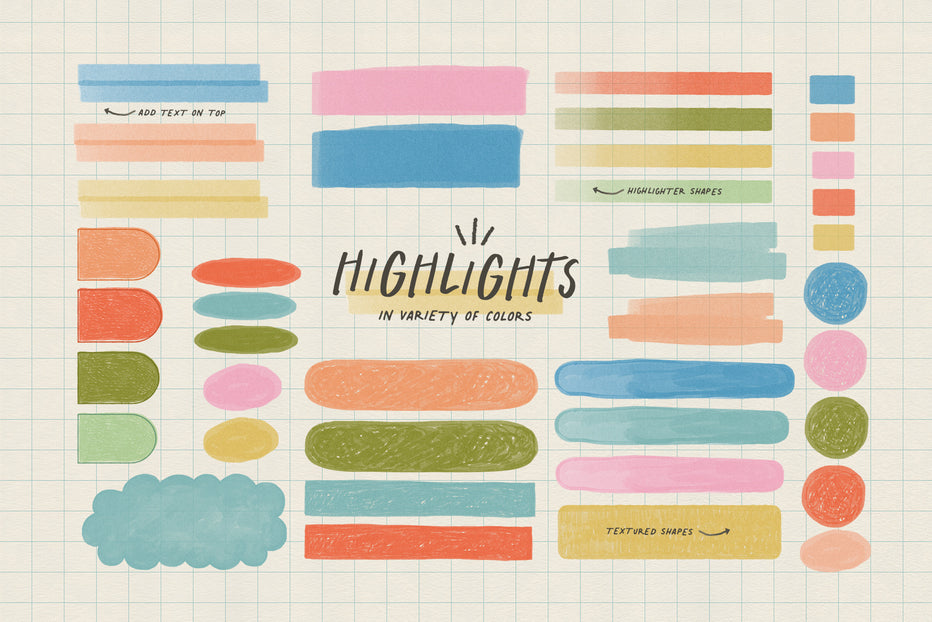 ADD TEXT ON TOP
HIGHLIGHTER SHAPES
HIGHLIGHTS
IN VARIETY OF COLORS
TEXTURED SHAPES